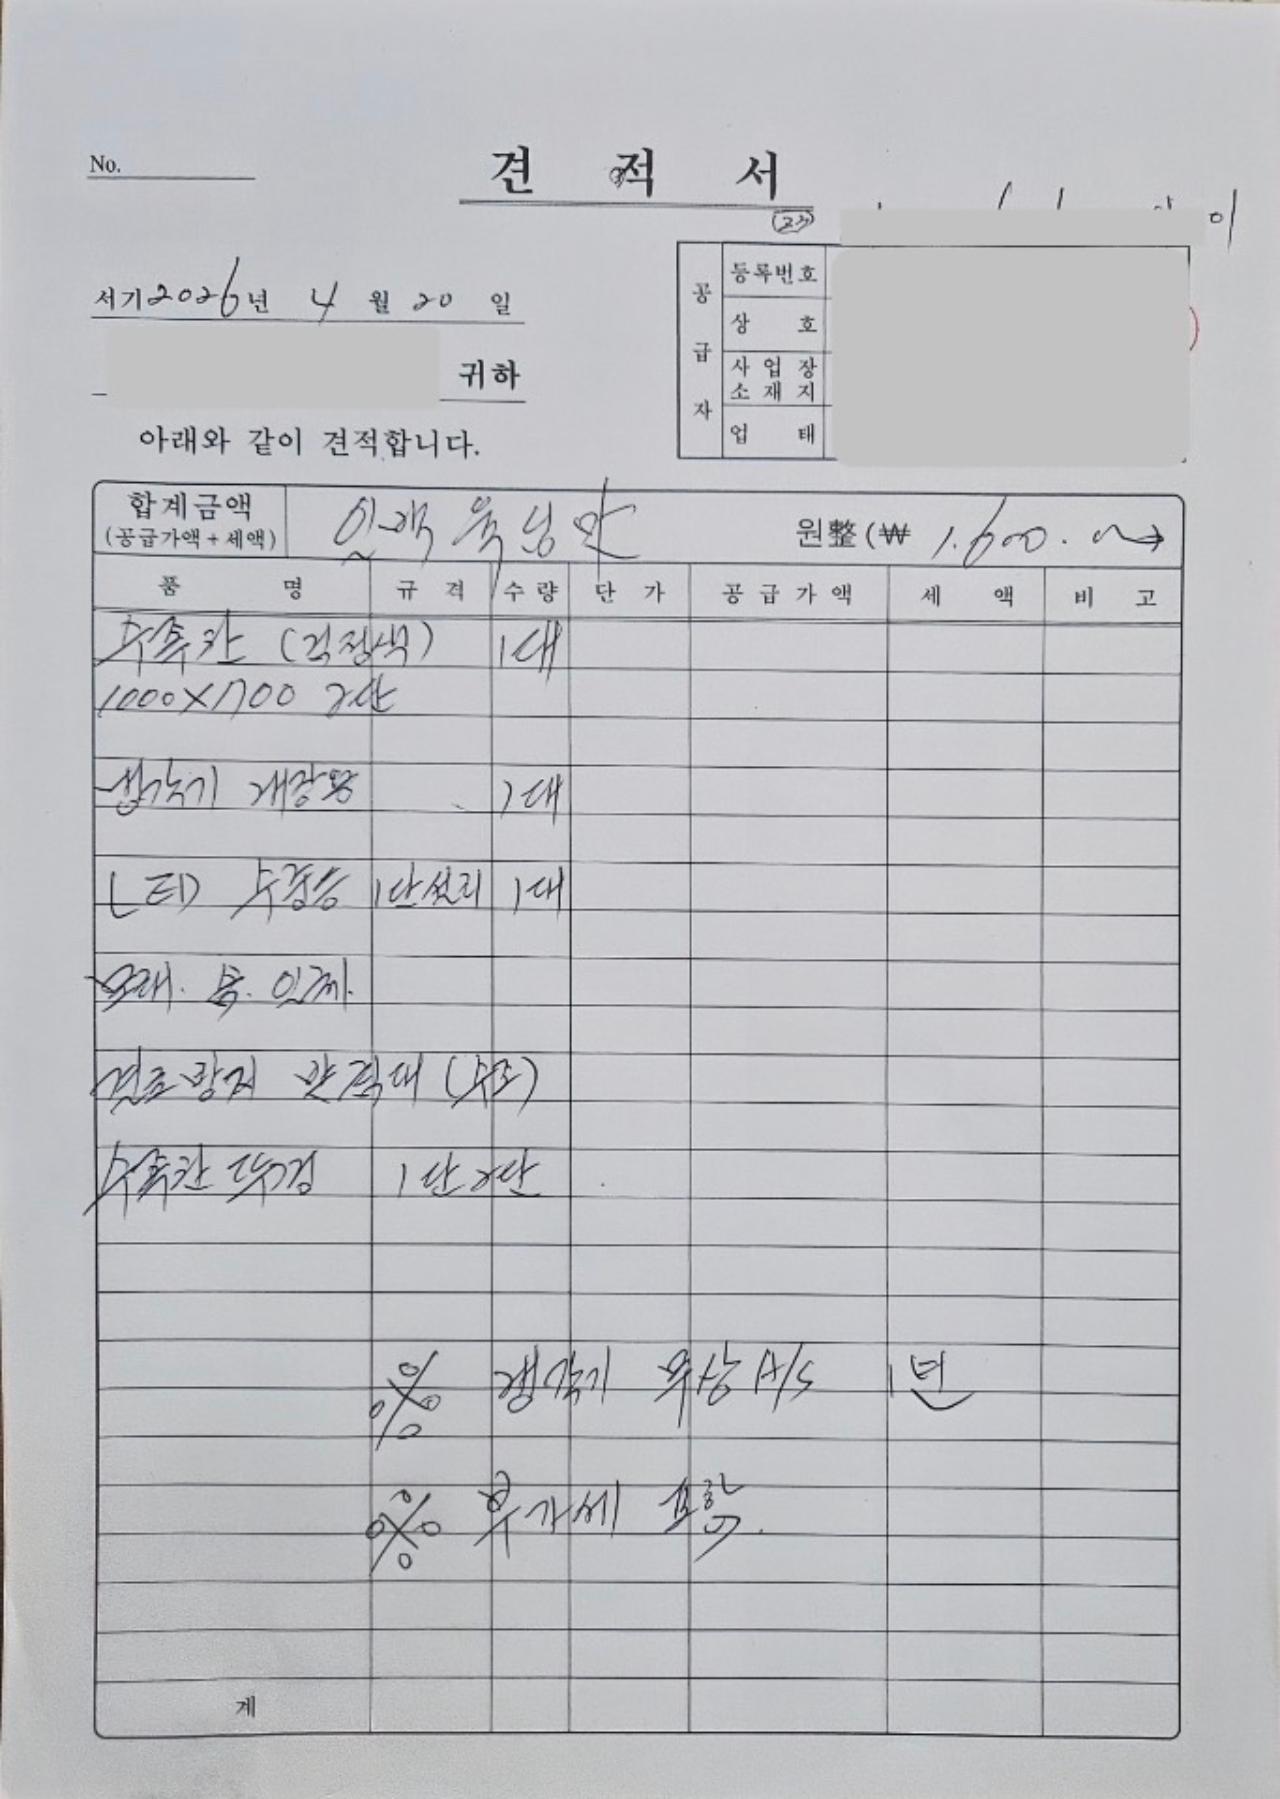 No.
견 적 서
서기 2026년 4월 20일
귀하
아래와 같이 견적합니다.
공급자
등록번호
상 호
사업장 소재지
업 태
합계금액 일백육십만 원整(₩ 1.600.
(공급가액+세액)
품 명 규 격 수량 단 가 공급가액 세 액 비 고
수족관 (검정색) 1대
1000X1700 2단
냉각기 개장용 1대
LED 수중등 1단설치 1대
모래. 속. 인제.
결로방지 받침대 (수조)
수족관 뚜껑 1단 2단
냉각기 무상 A/S 1년
부가세 포함.
계